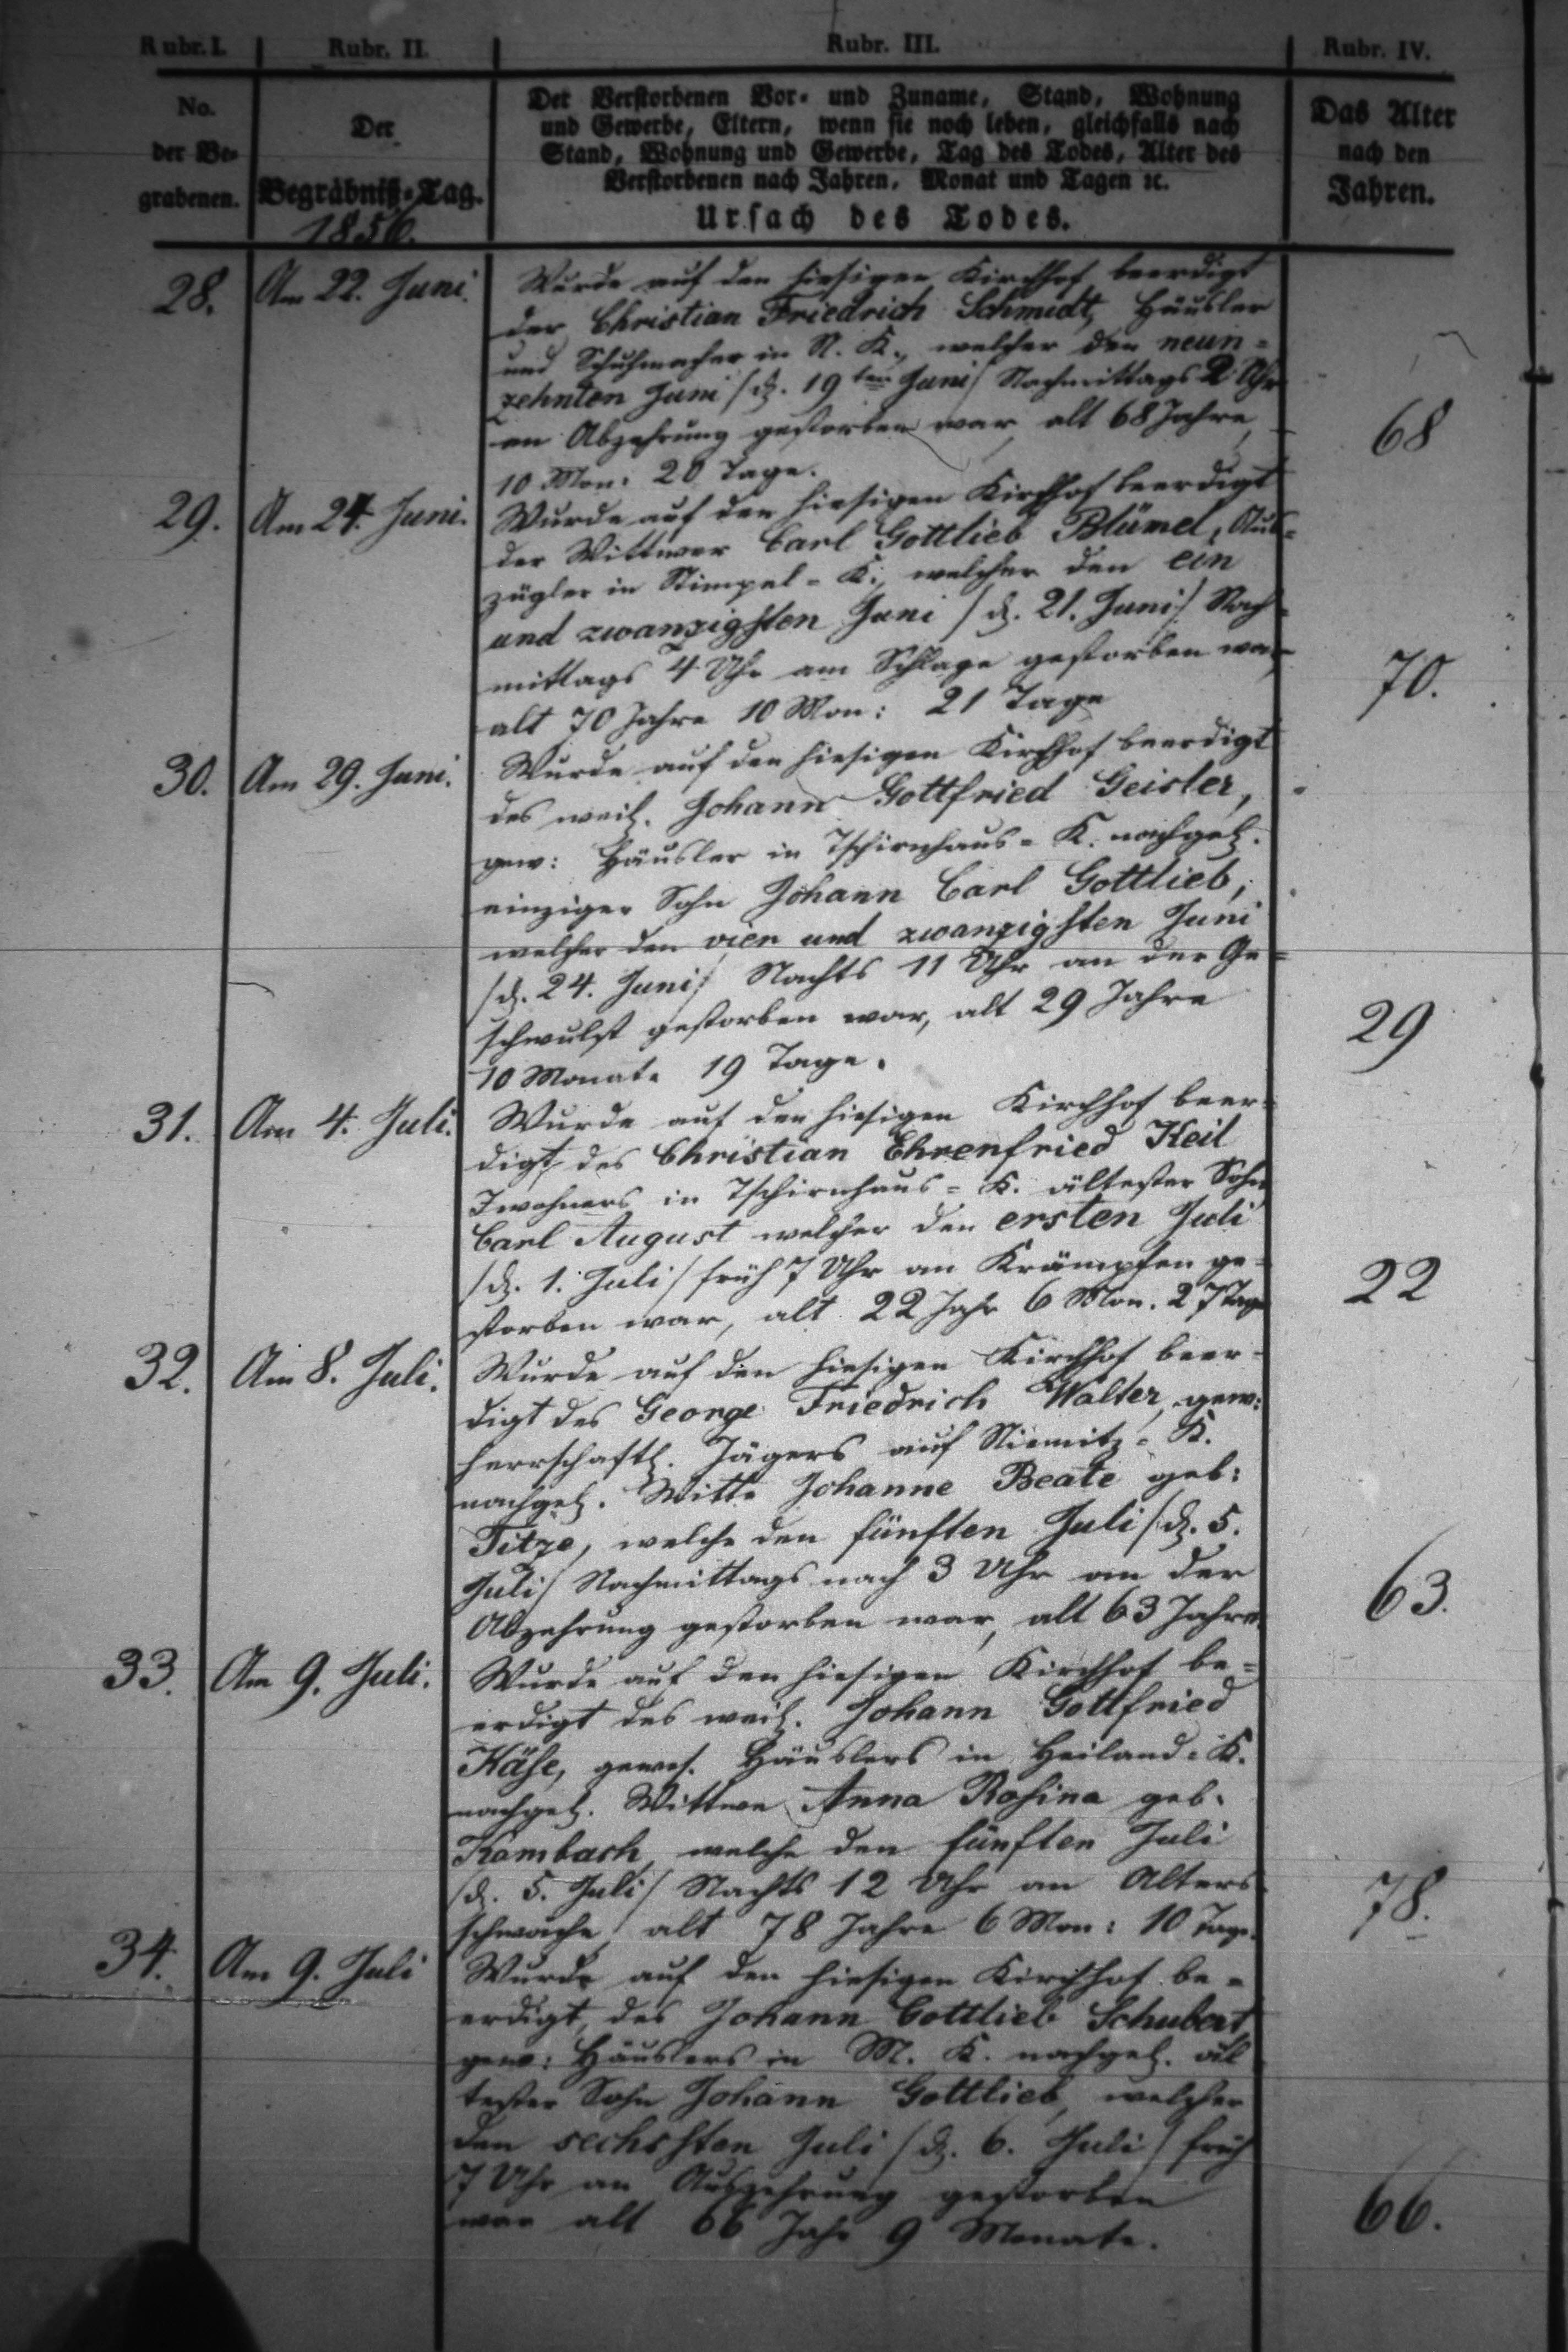 Rubr. I. Rubr. II. Rubr. III. Rubr. IV.
No. der Be- grabenen.
Der Begräbniß-Tag. 1856.
Der Verstorbenen Vor- und Zuname, Stand, Wohnung
und Gewerbe, Eltern, wenn sie noch leben, gleichfalls nach
Stand, Wohnung und Gewerbe, Tag des Todes, Alter des
Verstorbenen nach Jahren, Monat und Tagen ꝛc.
Ursach des Todes.
Das Alter nach den Jahren.
28. Am 22. Juni. Wurde auf den hiesigen Kirchhof beerdigt
der Christian Friedrich Schmidt, Häusler
und Schuhmacher in N. K., welcher den neun-
zehnten Juni /d. 19ten Juni/ Nachmittags 2 Uhr
an Abzehrung gestorben war, alt 68 Jahre, 68
10 Mon: 20 Tage.
29. Am 24. Juni. Wurde auf den hiesigen Kirchhof beerdigt
der Wittwer Carl Gottlieb Blümel, Aus-
zügler in Stimpel-K., welcher den ein
und zwanzigsten Juni /d. 21. Juni/ Nach-
mittags 4 Uhr am Schlage gestorben war, 70.
alt 70 Jahre 10 Mon: 21 Tage
30. Am 29. Juni. Wurde auf den hiesigen Kirchhof beerdigt
des weil. Johann Gottfried Geisler,
gew: Häusler in Tschirnhaus-K. nachgel.
einziger Sohn Johann Carl Gottlieb,
welcher den vier und zwanzigsten Juni
/d. 24. Juni/ Nachts 11 Uhr an der Ge-
schwulst gestorben war, alt 29 Jahre 29
10 Monate 19 Tage.
31. Am 4. Juli. Wurde auf den hiesigen Kirchhof beer-
digt des Christian Ehrenfried Keil
Inwohners in Tschirnhaus-K. ältester Sohn
Carl August welcher den ersten Juli
/d. 1. Juli/ früh 7 Uhr an Krämpfen ge- 22
storben war, alt 22 Jahr 6 Mon. 27 Tage
32. Am 8. Juli. Wurde auf den hiesigen Kirchhof beer-
digt des George Friedrich Walter, gew:
herrschaftl. Jägers auf Niemitz-K.
nachgel. Witte Johanne Beate geb:
Titze, welche den fünften Juli /d. 5.
Juli/ Nachmittags nach 3 Uhr an der
Abzehrung gestorben war, alt 63 Jahre. 63.
33. Am 9. Juli. Wurde auf den hiesigen Kirchhof be-
erdigt des weil. Johann Gottfried
Käse, gewes. Häuslers in Heiland-K.
nachgel. Wittwe Anna Rosina geb.
Kambach, welche den fünften Juli
/d. 5. Juli/ Nachts 12 Uhr an Alters
schwäche, alt 78 Jahre 6 Mon: 10 Tage. 78.
34. Am 9. Juli Wurde auf den hiesigen Kirchhof be-
erdigt, des Johann Gottlieb Schubert
gew: Häuslers in M. K. nachgel. äl
tester Sohn Johann Gottlieb, welcher
den sechsten Juli /d. 6. Juli/ früh
7 Uhr an Auszehrung gestorben
war alt 66 Jahr 9 Monate. 66.